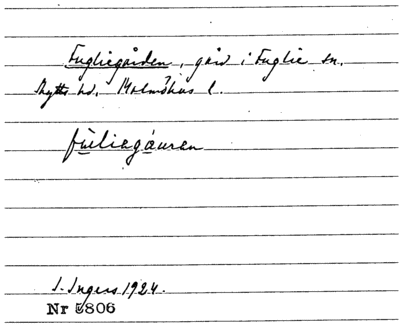 Fugliegården, gård i Fuglie sn.
Skytts hd. Malmöhus l.
fùliagáuran
I. Ingers 1924.
Nr 5806